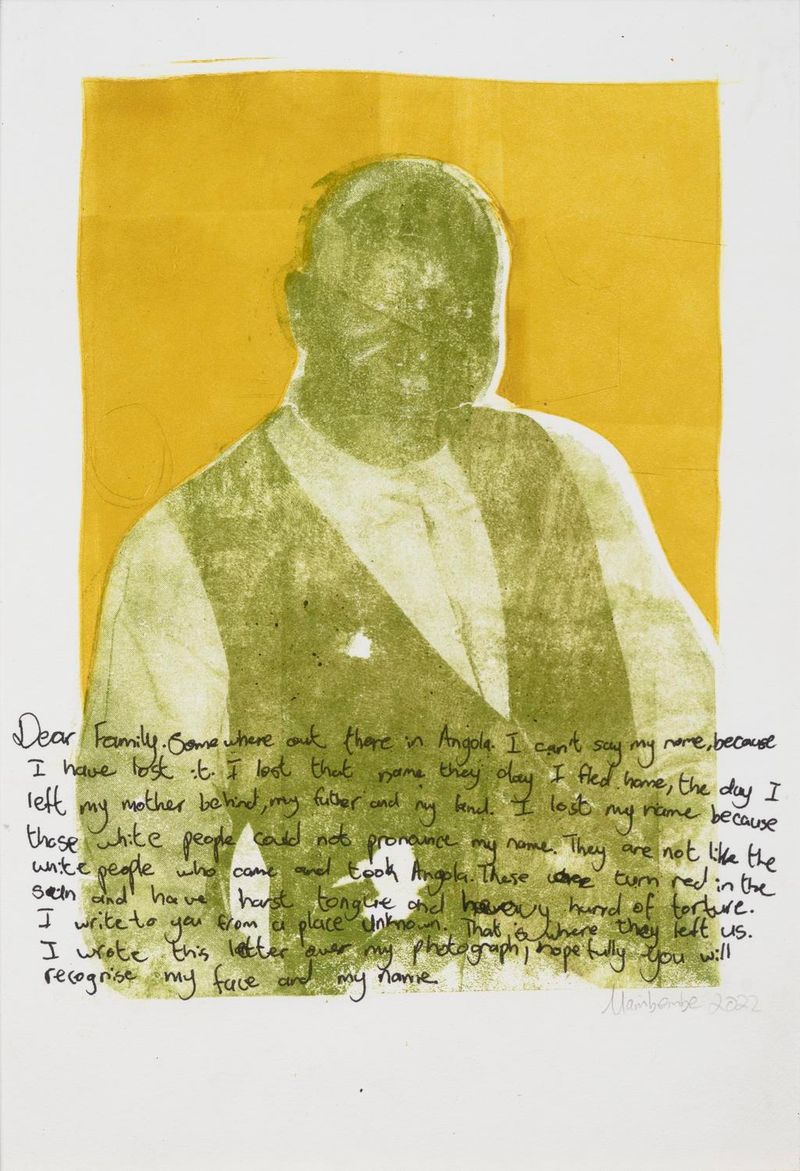 Dear Family. Somewhere out there in Angola. I can't say my name, because
I have lost it. I lost that name they day I fled home, the day I
left my mother behind, my father and my land. I lost my name because
those white people could not pronounce my name. They are not like the
white people who came and took Angola. These ones turn red in the
sun and have harst tongue and heavy hand of torture.
I write to you from a place unknown. That is where they left us.
I wrote this letter over my photograph, hopefully you will
recognise my face and my name.
Mambembe 2022